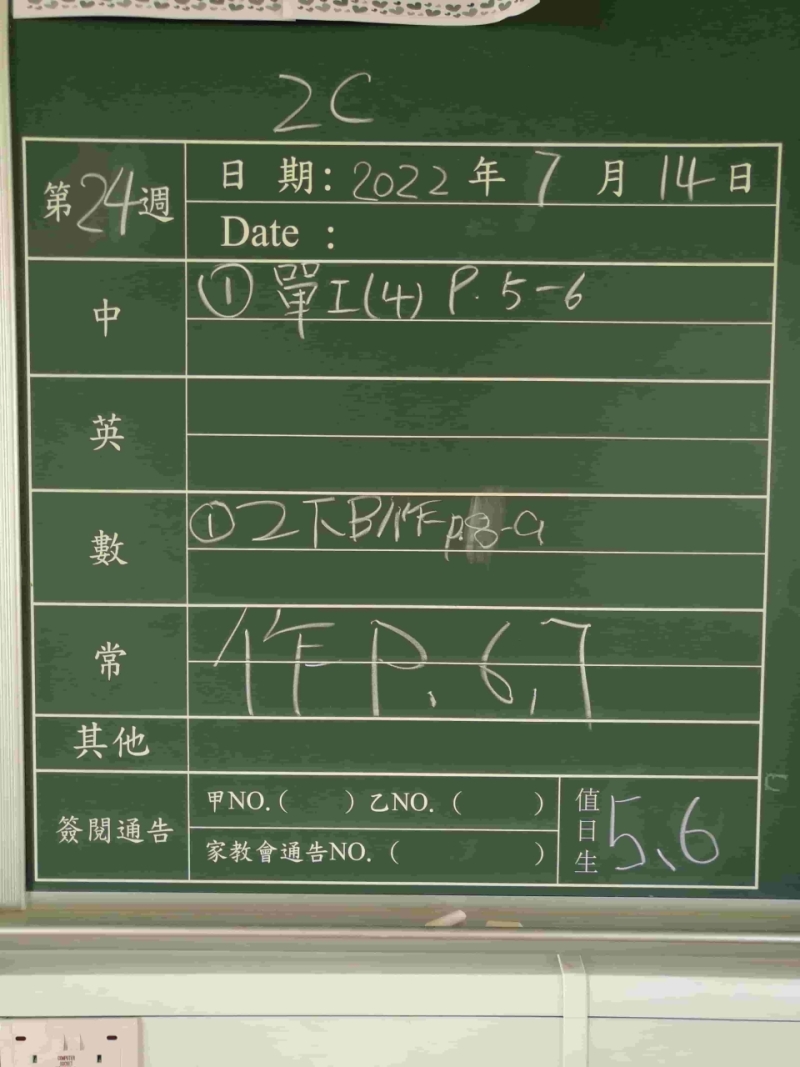 2C
第24週
日 期: 2022 年 7 月 14 日
Date :
中
① 單工(4) P. 5-6
英
數
① 2下B作 p.8-9
常
作 P. 6,7
其他
簽閱通告
甲NO.( ) 乙NO. ( )
家教會通告NO. ( )
值日生
5、6